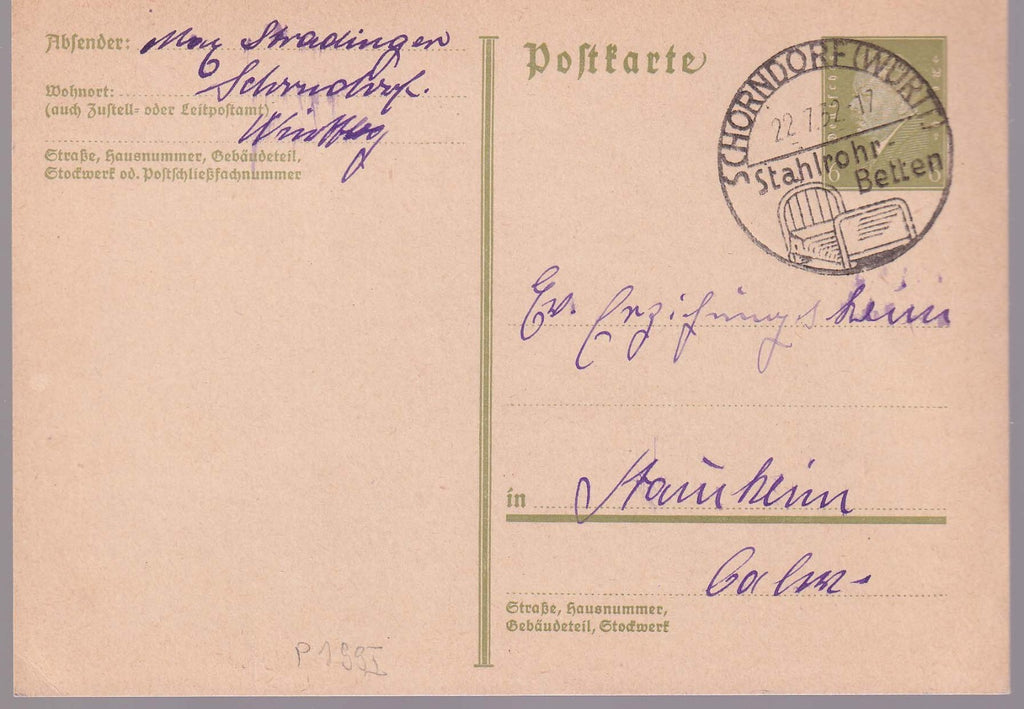 Absender: Max Stradinger
Wohnort: Schorndorf.
(auch Zustell- oder Leitpostamt)
Straße, Hausnummer, Gebäudeteil,
Stockwerk od. Postschließfachnummer
Postkarte
SCHORNDORF (WÜRTT)
22.7.32.17
Stahlrohr
Betten
6 6
Ev. Erziehungsheim
in Stammheim
Calw-
Straße, Hausnummer,
Gebäudeteil, Stockwerk
P 199I